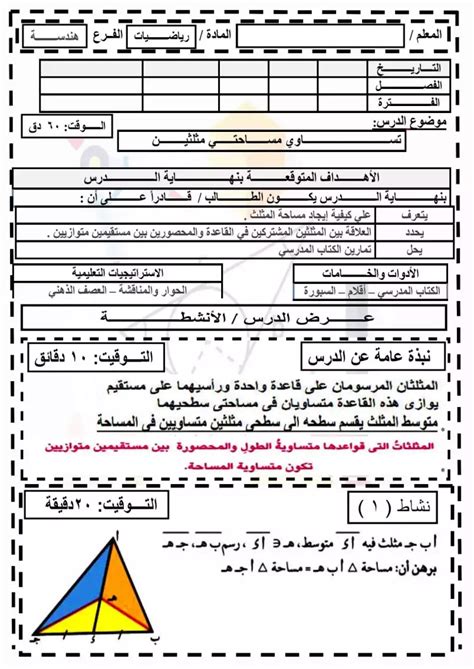 المعلم / المادة / رياضـــيات الفـرع هندســـة
التــاريـــخ
الفصــــل
الفـتـرة
موضوع الدرس: الــوقت: ٦٠ دق
تســـــاوي مساحـتــي مثلثيــن
الأهـــداف المتوقعـــة بنهـــاية الـــدرس
بنهـاية الـــدرس يكــون الطــالب / قـادراً عــلى أن :
يتعرف علي كيفية إيجاد مساحة المثلث .
يحدد العلاقة بين المثلثين المشتركين في القاعدة والمحصورين بين مستقيمين متوازيين .
يحل تمارين الكتاب المدرسي
الأدوات والخـــامات الاستراتيجيات التعليمية
الكتاب المدرسي – أقلام – السبورة الحوار والمناقشة – العصف الذهني
عـــرض الدرس / الأنشطـــــة
نبذة عامة عن الدرس التــوقيت: ١٠ دقائق
المثلثان المرسومان على قاعدة واحدة ورأسيهما على مستقيم
يوازى هذه القاعدة متساويان فى مساحتى سطحيهما
متوسط المثلث يقسم سطحه الى سطحي مثلثين متساويين فى المساحة
المثلثات التى قواعدها متساوية الطول والمحصورة بين مستقيمين متوازيين
تكون متساوية المساحة.
نشاط ( ١ ) التــوقيت: ٢٠دقيقة
أ ب جـ مثلث فيه أ ء متوسط، هـ ∋ أ ء ، رسم ب هـ ، جـ هـ
برهن أن: مساحة △ أ ب هـ = مساحة △ أ جـ هـ
أ
هـ
جـ ء ب